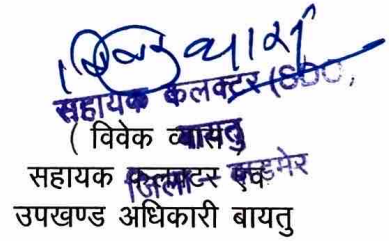 सहायक कलक्टर (SDO)
( विवेक व्यास )
बायतु
सहायक कलक्टर एवं
जिला - बाड़मेर
उपखण्ड अधिकारी बायतु